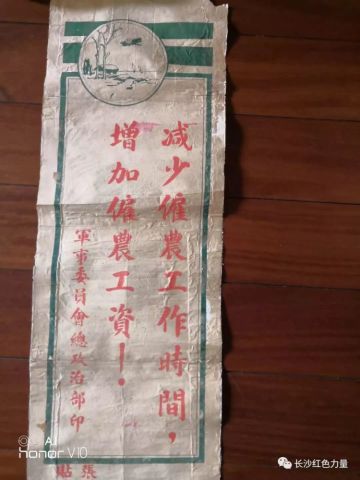 减少僱農工作時間，
增加僱農工資！
軍事委員會總政治部印
張貼
AI
honor V10
长沙红色力量